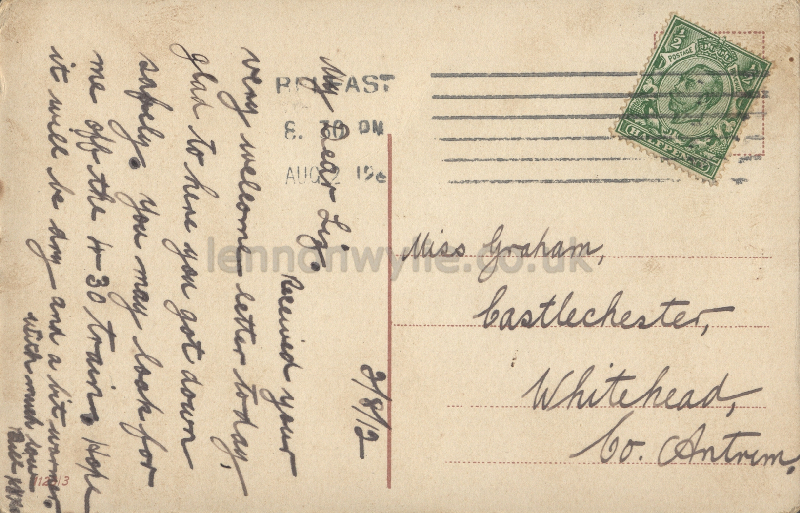 2/8/12
My Dear Liz.
Received your
very welcome letter today,
glad to here you got down
safely. You may look for
me off the 4 30 train. Hope
it will be dry and a bit warmer
with much love
Miss Graham,
Castlechester,
Whitehead,
Co. Antrim.
BELFAST
8. PM
AUG 2 12
½ ½
POSTAGE
HALFPENNY
lennonwylie.co.uk